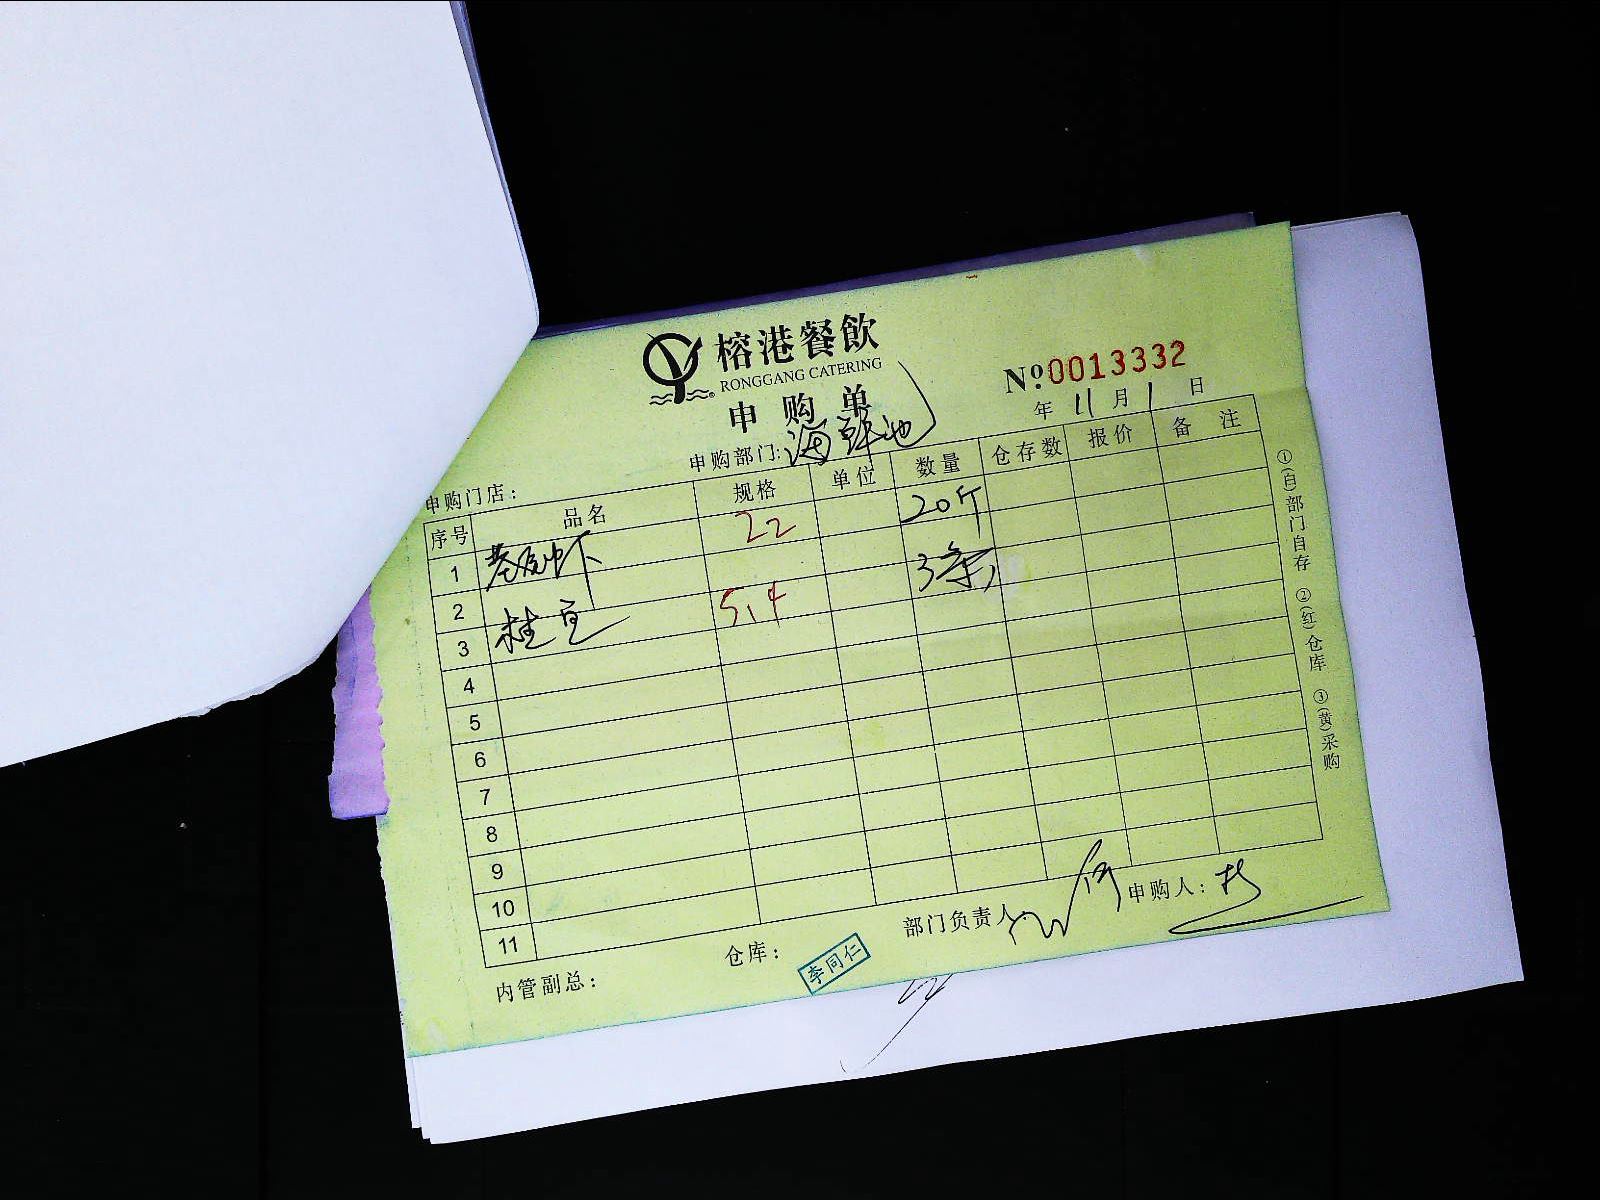 榕港餐飲
RONGGANG CATERING
申购单
№0013332
年 11 月 1 日
申购门店： 申购部门:海鲜池
序号 品名 规格 单位 数量 仓存数 报价 备注
1 基尾虾 22 20斤
2 3条
3 桂鱼 5.4
4
5
6
7
8
9
10
11
内管副总： 仓库： 李同仁 部门负责人: 申购人：
①(白)部门自存 ②(红)仓库 ③(黄)采购